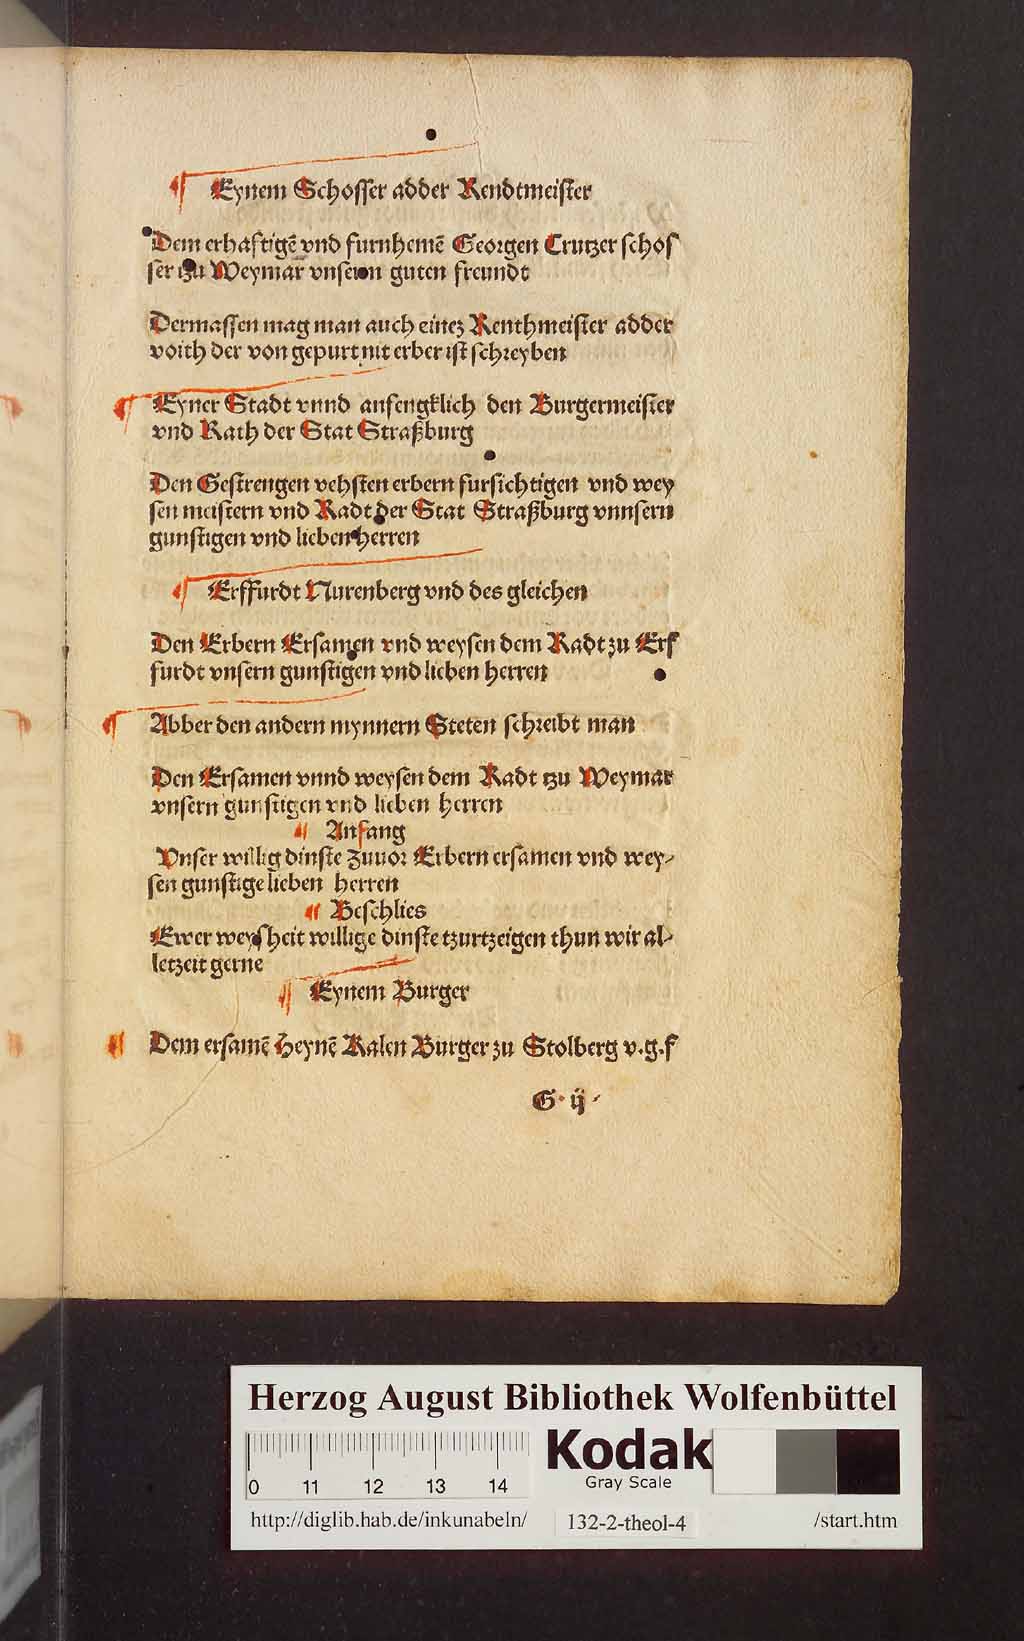 ¶ Eynem Schosser adder Rendtmeister
Dem erhaftigē vnd furnhemē Georgen Crutzer schos
ser tzu Weymar vnsern guten freundt
Dermassen mag man auch einez Renthmeister adder
voith der von gepurt nit erber ist schreyben
¶ Eyner Stadt vnnd anfengklich den Burgermeister
vnd Rath der Stat Straßburg
Den Gestrengen vehsten erbern fursichtigen vnd wey
sen meistern vnd Radt der Stat Straßburg vnnsern
gunstigen vnd lieben herren
¶ Erffurdt Nurenberg vnd des gleichen
Den Erbern Ersamen vnd weysen dem Radt zu Erf
furdt vnsern gunstigen vnd lieben herren
¶ Abber den andern mynnern Steten schreibt man
Den Ersamen vnnd weysen dem Radt tzu Weymar
vnsern gunstigen vnd lieben herren
¶ Anfang
Vnser willig dinste zuuor Erbern ersamen vnd wey-
sen gunstige lieben herren
¶ Beschlies
Ewer weysheit willige dinste tzurtzeigen thun wir al-
letzeit gerne
¶ Eynem Burger
¶ Dem ersamē Heynē Kalen Burger zu Stolberg v.g.f
G ij
Herzog August Bibliothek Wolfenbüttel
0 11 12 13 14
Kodak
Gray Scale
http://diglib.hab.de/inkunabeln/ 132-2-theol-4 /start.htm